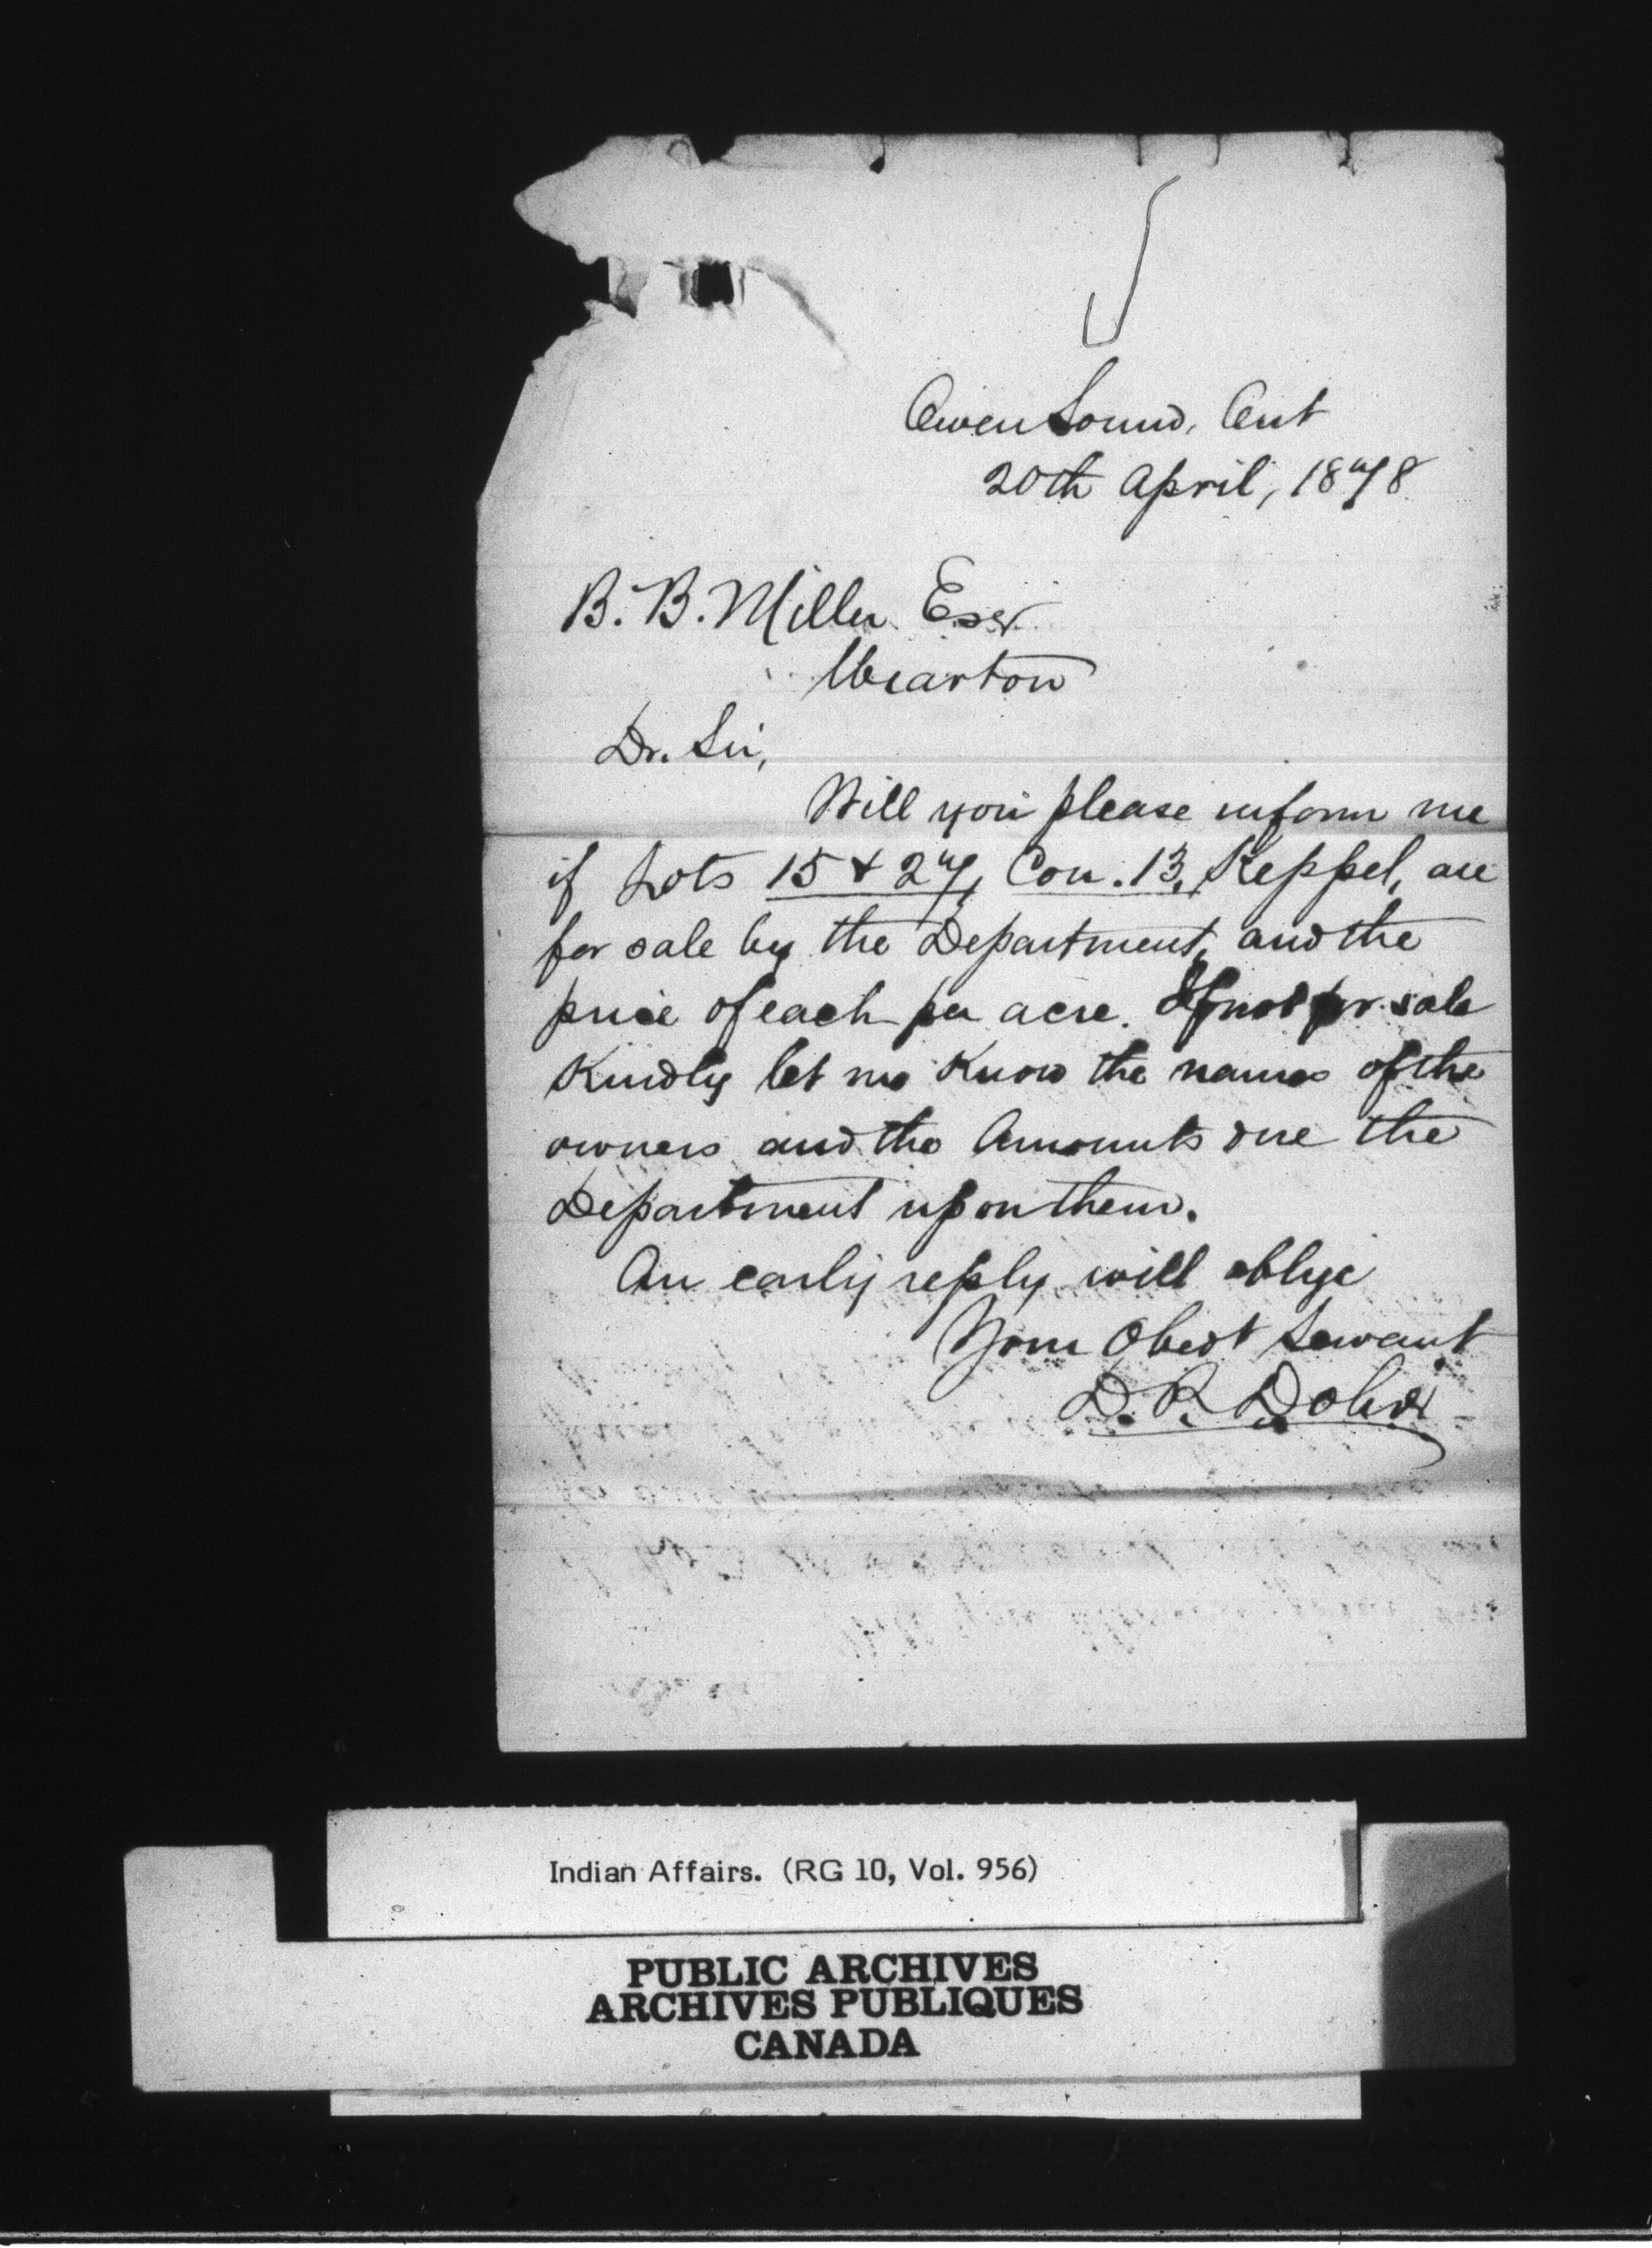 Owen Sound, Ont
20th April, 1878
B. B. Miller Esqr
Wiarton
Dr. Sir,
Will you please inform me
if Lots 15 & 27, Con. 13, Keppel, are
for sale by the Department, and the
price of each per acre. If not for sale
Kindly let me Know the names of the
owners and the Amounts due the
Department upon them.
An early reply will oblige
Your Obedt Servant
D. R. Dobie
Indian Affairs. (RG 10, Vol. 956)
PUBLIC ARCHIVES
ARCHIVES PUBLIQUES
CANADA